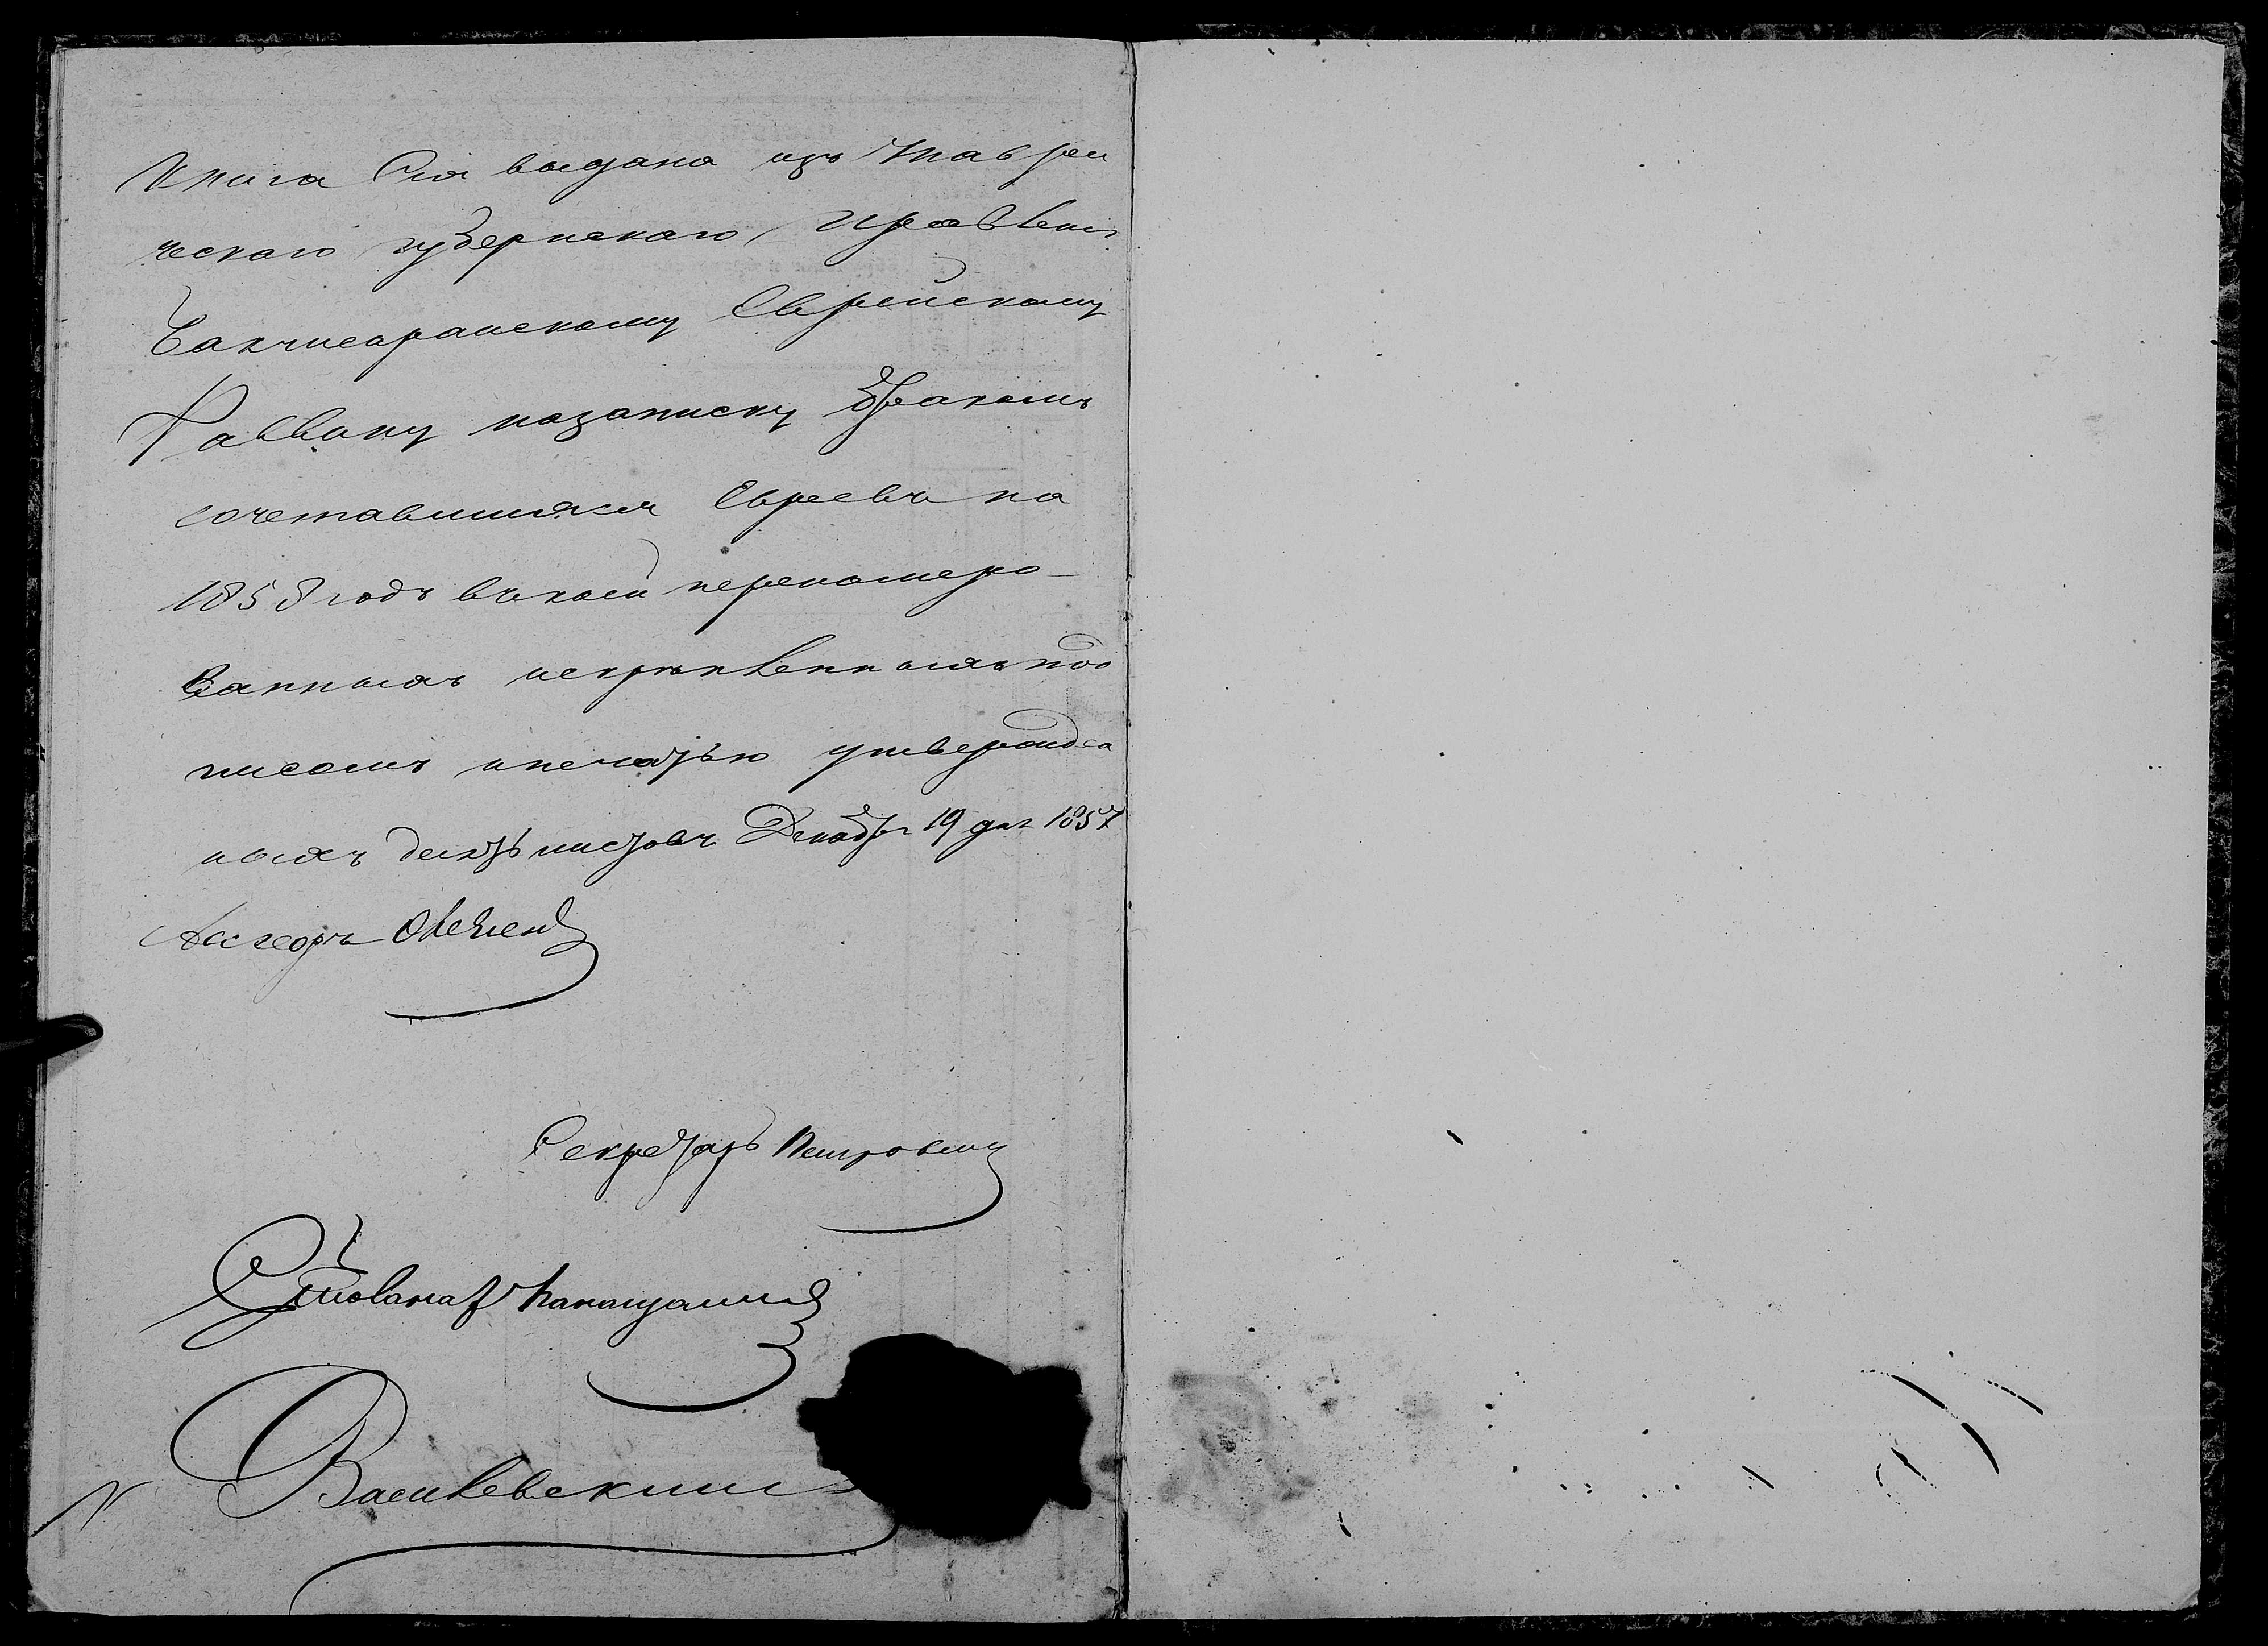 Книга Сія выдана изъ Таври
ческаго губернскаго правленія
Бахчисарайскому Еврейскому
Раввину на записку бракомъ
сочетавшихся Евреевъ на
1858 годъ въ коей перенумеро-
ванныхъ искрѣпленныхъ под
писомъ и печатью утвержден
ныхъ десять листовъ Декабря 19 дня 1857
Ассесоръ
Секретарь Петровскій
Василевскій